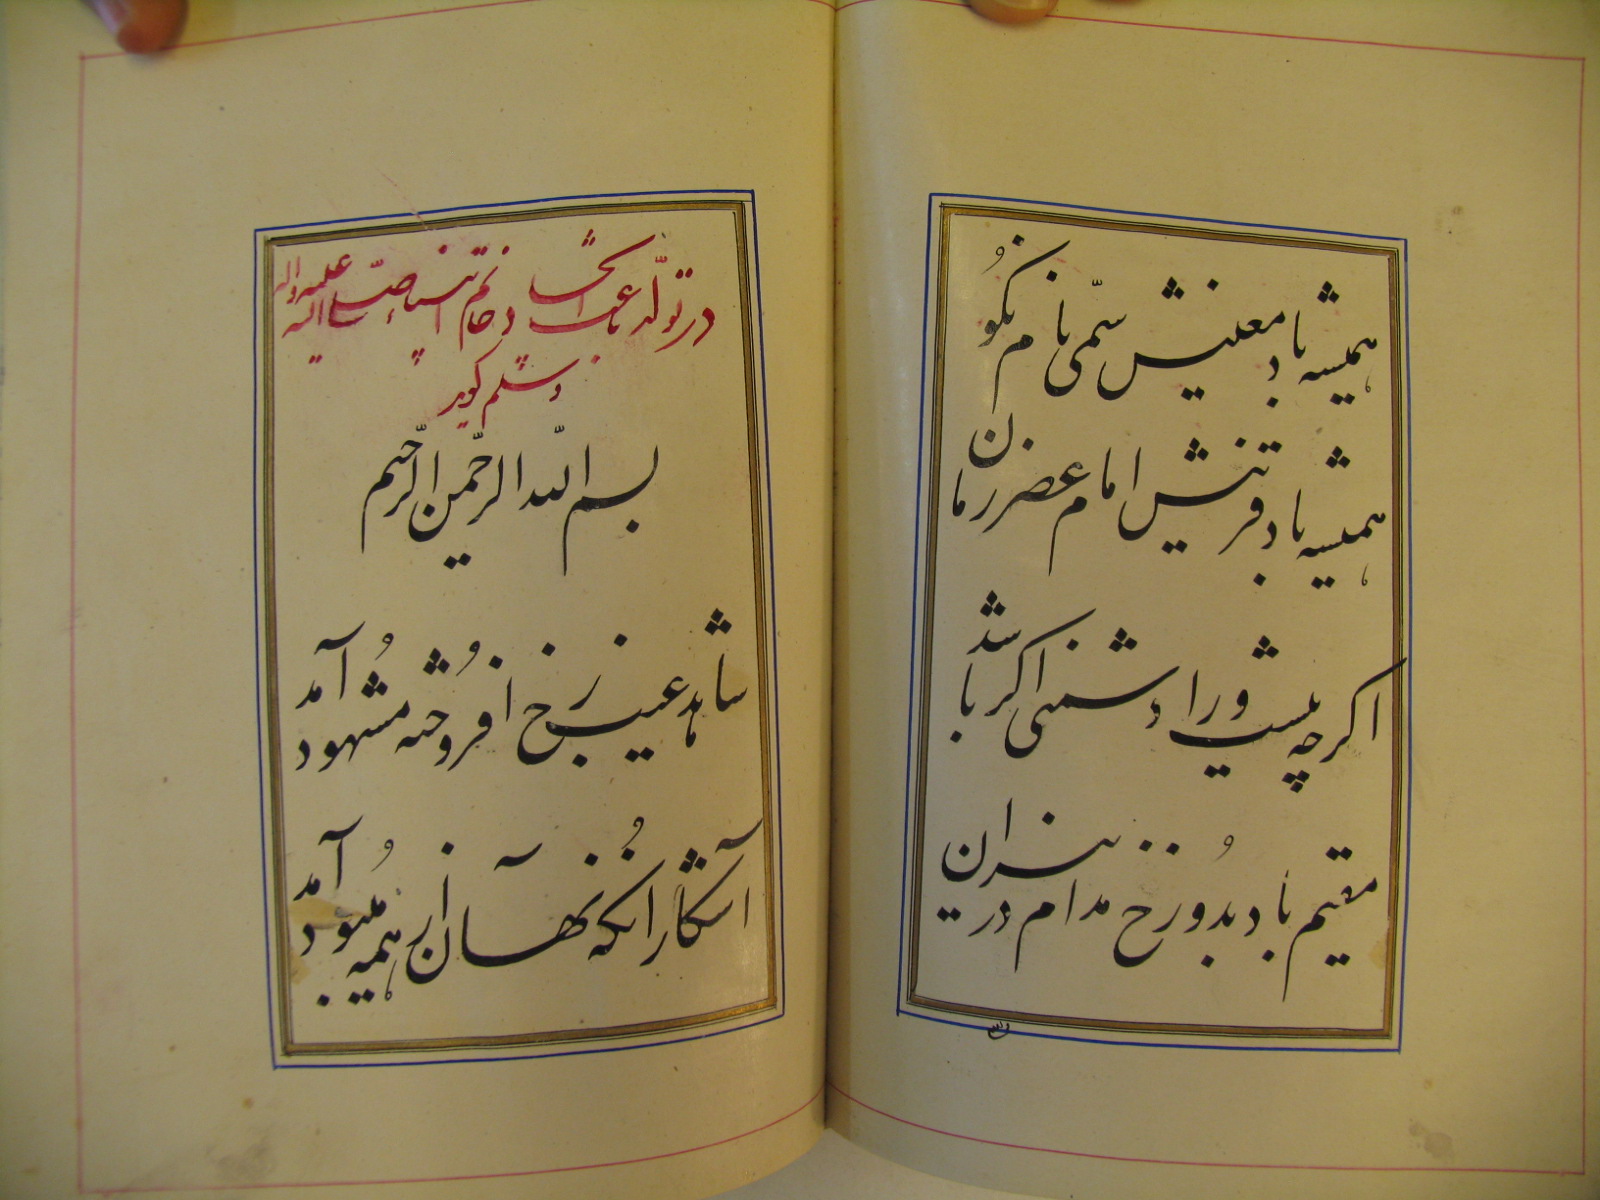 همیشه باد معینش سمّی نام نکو
همیشه باد قرینش امام عصر زمان
اگرچه پیشه ورا دشمنی اگر باشد
مقیم باد بدوزخ مدام در نیران
در تولّد باعث ایجاد خاتم انبیاء صلّی الله علیه واله
وسلم گوید
بسم اللّه الرّحمن الرّحیم
شاهد غیب رخ افروخته مشهود آمد
آشکار آنکه نهان از همه میبود آمد